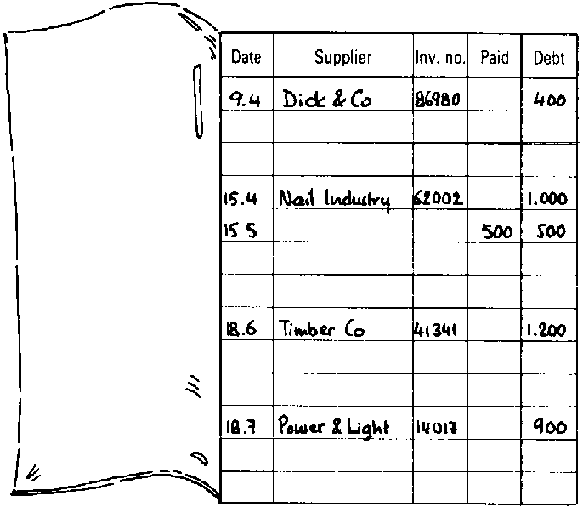 Date Supplier Inv. no. Paid Debt
9.4 Dick & Co 86980 400
15.4 Nail Industry 62002 1.000
15 5 500 500
18.6 Timber Co 41341 1.200
18.7 Power & Light 14017 900